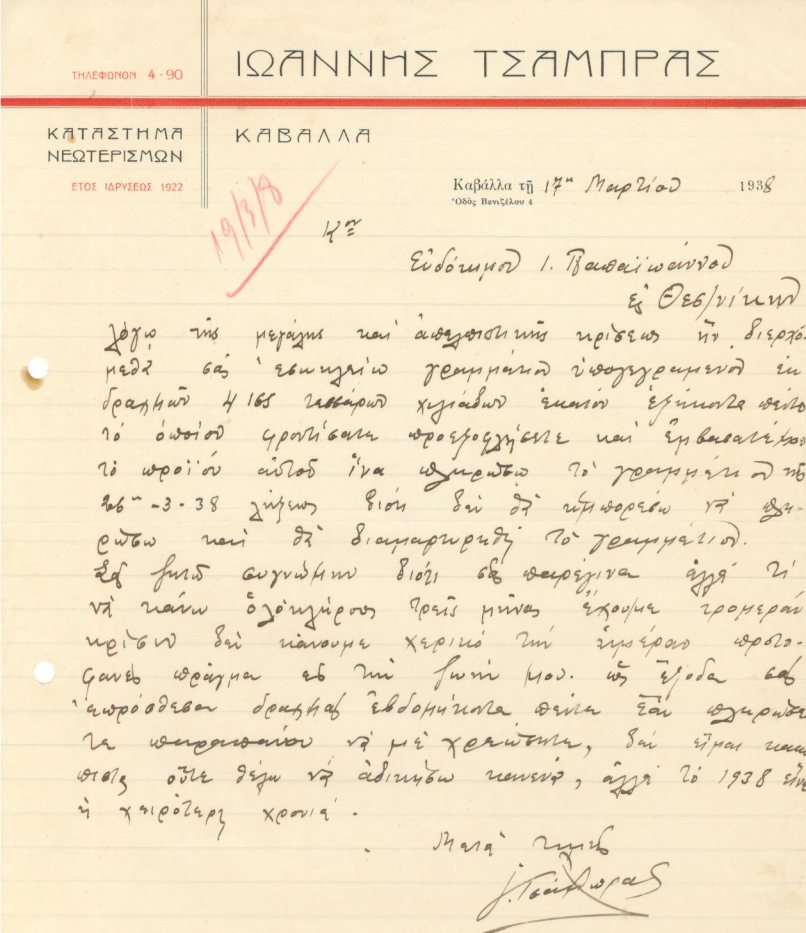 ΤΗΛΕΦΩΝΟΝ 4-90
ΙΩΑΝΝΗΣ ΤΣΑΜΠΡΑΣ
ΚΑΤΑΣΤΗΜΑ
ΝΕΩΤΕΡΙΣΜΩΝ
ΕΤΟΣ ΙΔΡΥΣΕΩΣ 1922
ΚΑΒΑΛΛΑ
19/3/8
Καβάλλα τῇ 17η Μαρτίου 1938
Ὁδὸς Βενιζέλου 4
Κον
Εὐδόκιμον Ι. Παπαϊωάννου
εἰς Θεσ/νίκην
λόγῳ τῆς μεγάλης καὶ ἀπελπιστικῆς κρίσεως ἣν διερχό-
μεθα σᾶς ἐσωκλείω γραμμάτιον ὑπογεγραμενον ἐκ
δραχμῶν 4165 τεσσάρων χιλιάδων ἑκατόν ἑξήκοντα πέντε
τὸ ὁποῖον φροντίσατε προεξοφλήσετε καὶ ἐμβασατέ μου
τὸ προϊόν αὐτοῦ ἵνα πληρώσω τὸ γραμμάτιον τῆς
26ης -3-38 λήξεως διότι δὲν θὰ ἠμπορέσω νὰ πλη-
ρώσω καὶ θὰ διαμαρτυρηθῇ τὸ γραμμάτιον.
Σᾶς ζητῶ συγνώμην διότι σᾶς παρέγινα ἀλλὰ τί
νὰ κάνω ὁλόκληρους τρεῖς μῆνας ἔχουμε τρομεράν
κρίσιν δὲν κάνουμε χερικό τὴν ἡμέραν πρωτο-
φανές πρᾶγμα εἰς τὴν ζωήν μου. ὡς ἔξοδα σας
ἐπρόσθεσα δραχμάς ἑβδομήκοντα πέντε ἐὰν πληρώσε
τε παραπάνω νὰ μὲ χρεώσητε, δὲν εἶμαι κακο
πιστος οὔτε θέλω νὰ ἀδικήσω κανενα, ἀλλὰ τὸ 1938 εἶνε
ἡ χειρότερη χρονιά.
Μετὰ τιμῆς
Ι. Τσάμπρας